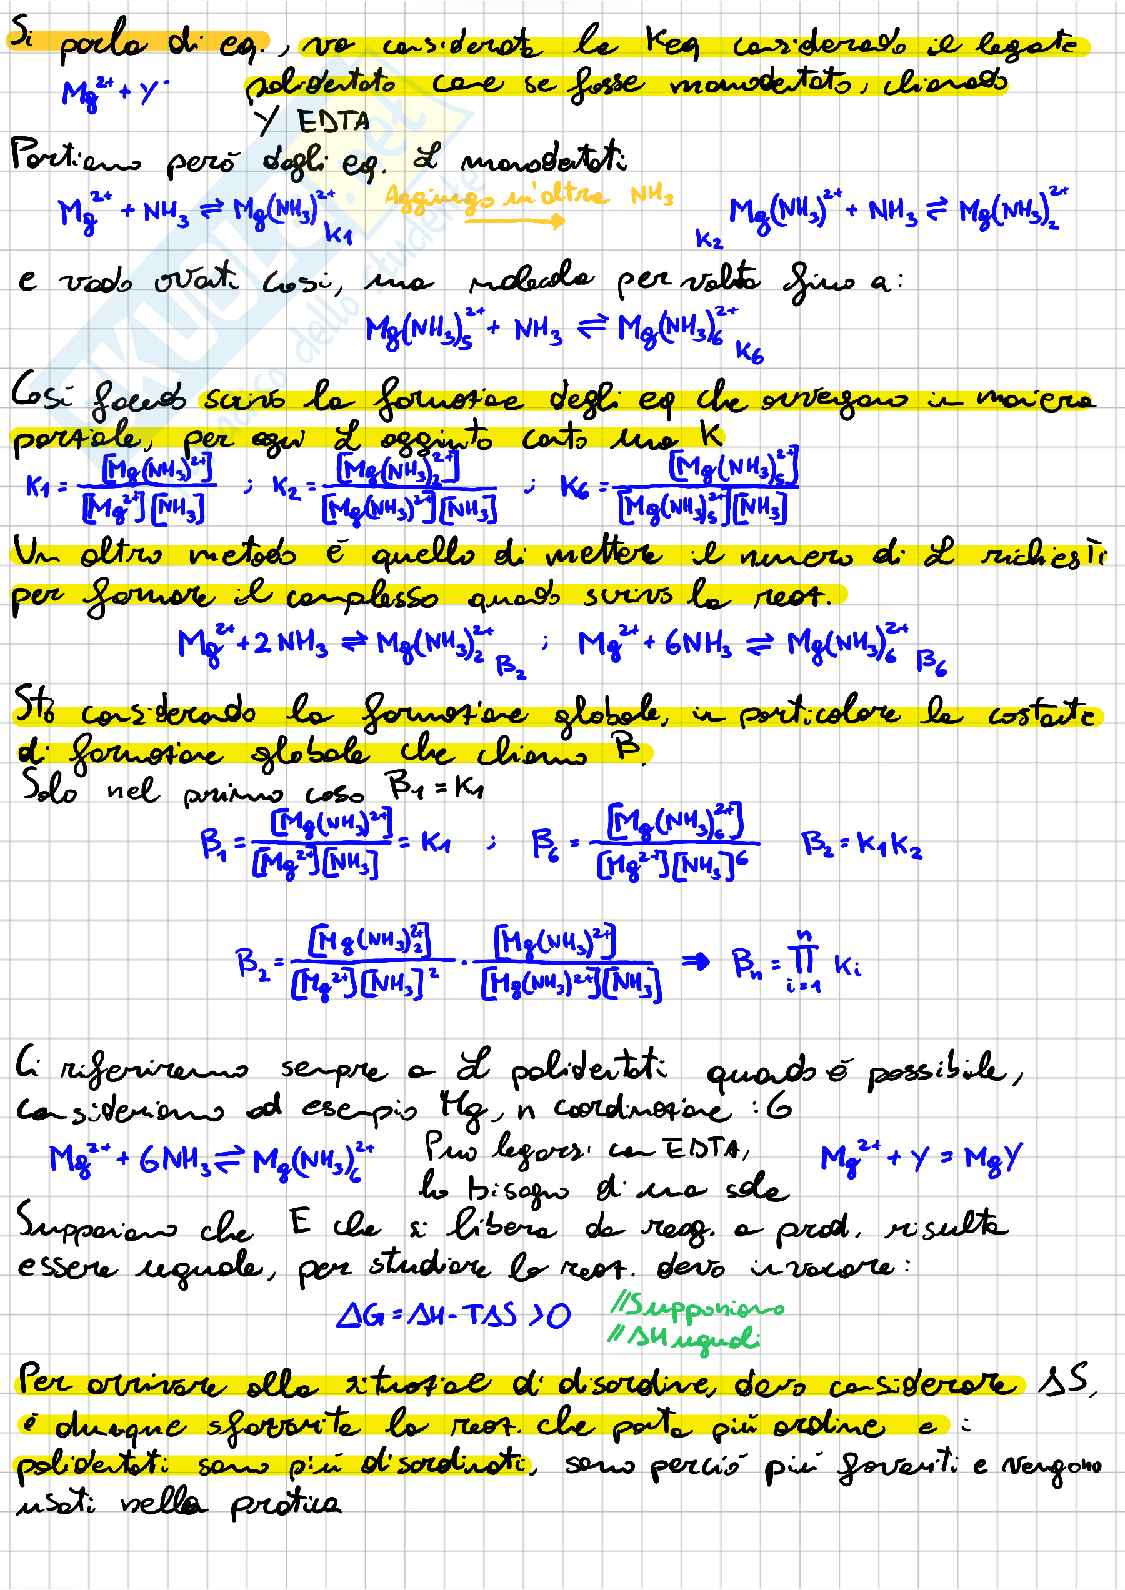 Si parla di eq., va considerata la Keq considerando il legante
Mg²⁺ + Y⁻ polidentato come se fosse monodentato, chiamado
Y EDTA
Partiamo però dagli eq. L monodentati
Mg²⁺ + NH₃ ⇌ Mg(NH₃)²⁺ K1 Aggiungo un'altra NH₃ → K2 Mg(NH₃)²⁺ + NH₃ ⇌ Mg(NH₃)₂²⁺
e vado avanti così, una molecola per volta fino a:
Mg(NH₃)₅²⁺ + NH₃ ⇌ Mg(NH₃)₆²⁺ K6
Così facendo scrivo la formazione degli eq che avvengono in maniera
parziale, per ogni L aggiunto conto una K
K1 = [Mg(NH₃)²⁺] / [Mg²⁺][NH₃] ; K2 = [Mg(NH₃)₂²⁺] / [Mg(NH₃)²⁺][NH₃] ; K6 = [Mg(NH₃)₆²⁺] / [Mg(NH₃)₅²⁺][NH₃]
Un altro metodo è quello di mettere il numero di L richiesti
per formare il complesso quando scrivo la reaz.
Mg²⁺ + 2NH₃ ⇌ Mg(NH₃)₂²⁺ B₂ ; Mg²⁺ + 6NH₃ ⇌ Mg(NH₃)₆²⁺ B₆
Stò considerando la formazione globale, in particolare la costante
di formazione globale che chiamo B.
Solo nel primo caso B1 = K1
B₁ = [Mg(NH₃)²⁺] / [Mg²⁺][NH₃] = K1 ; B₆ = [Mg(NH₃)₆²⁺] / [Mg²⁺][NH₃]⁶ B₂ = K1K2
B₂ = [Mg(NH₃)₂²⁺] / [Mg²⁺][NH₃]² · [Mg(NH₃)²⁺] / [Mg(NH₃)²⁺][NH₃] ⇒ Bₙ = ∏ᵢ₌₁ⁿ Ki
Ci riferiremo sempre a L polidentati quando è possibile,
consideriamo ad esempio Mg, n coordinazione : 6
Mg²⁺ + 6NH₃ ⇌ Mg(NH₃)₆²⁺ Può legarsi con EDTA, Mg²⁺ + Y = MgY
ho bisogno di una sola
Supponiamo che E che si libera da reag. a prod. risulta
essere uguale, per studiare la reaz. devo invocare:
ΔG = ΔH - TΔS > 0 //Supponiamo
//ΔH uguali
Per arrivare alla situazione di disordine, devo considerare ΔS,
è dunque sfavorita la reaz. che porta più ordine e i
polidentati sono più disordinati, sono perciò più favoriti e vengono
usati nella pratica